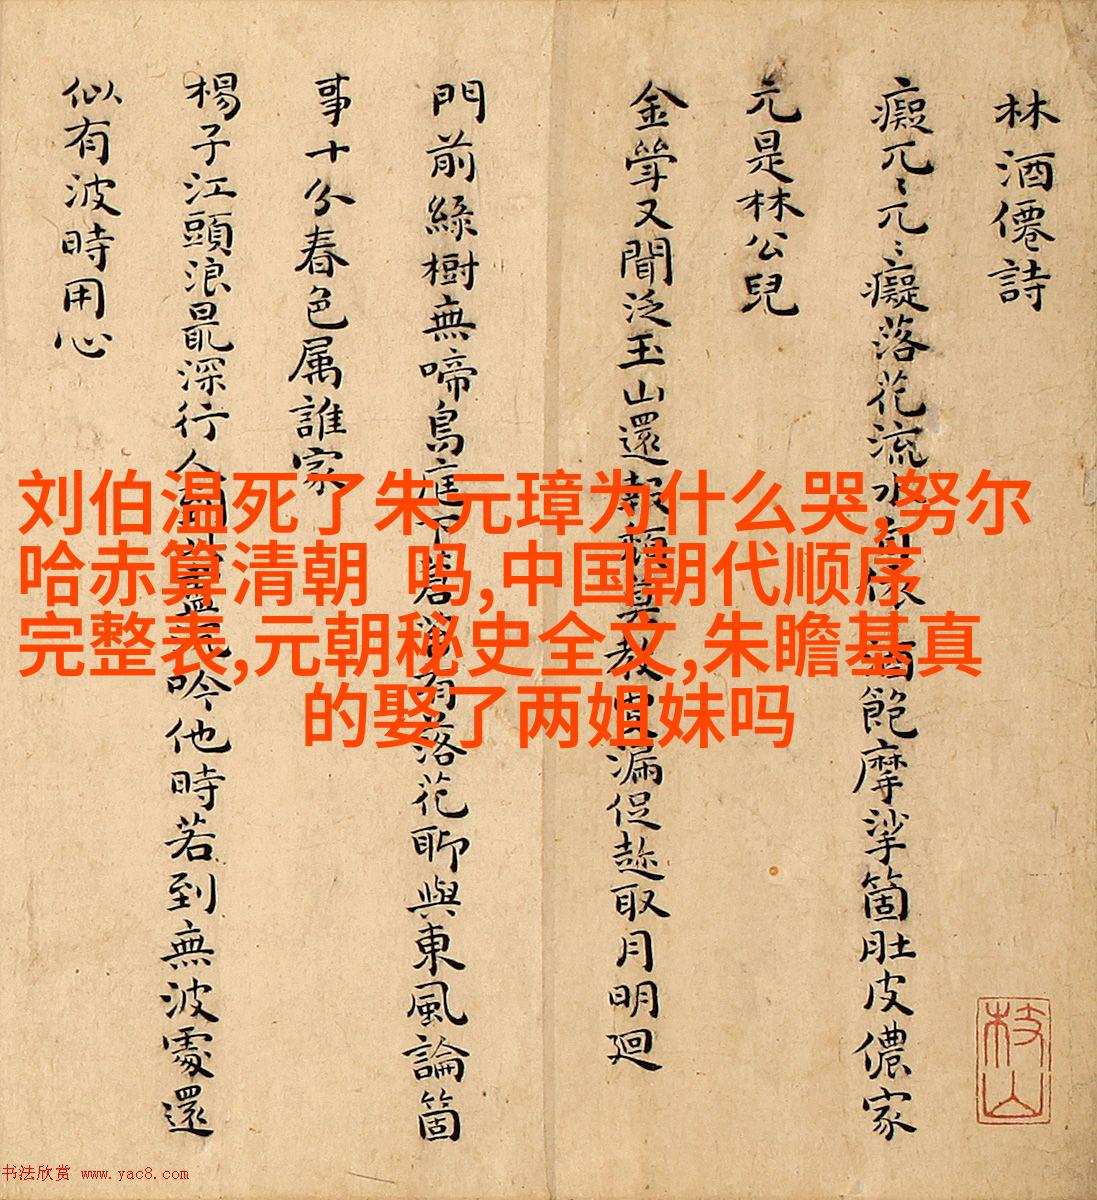 林酒僊詩
癡兀〻兀〻癡落花流水自依酒飽摩挲箇肚皮儂家
元是林公兒
金斝又聞泛玉山還報頹莫教更漏促趁取月明廻
門前綠樹無啼鳥庭下蒼苔有落花聊與東風論箇
事十分春色属誰家
楊子江頭浪最深行人到此盡沉吟他時若到無波處還
似有波時用心
枝山
刘伯温死了朱元璋为什么哭,努尔
哈赤算清朝 吗,中国朝代顺序
完整表,元朝秘史全文,朱瞻基真
的娶了两姐妹吗
书法欣赏 www.yac8.com